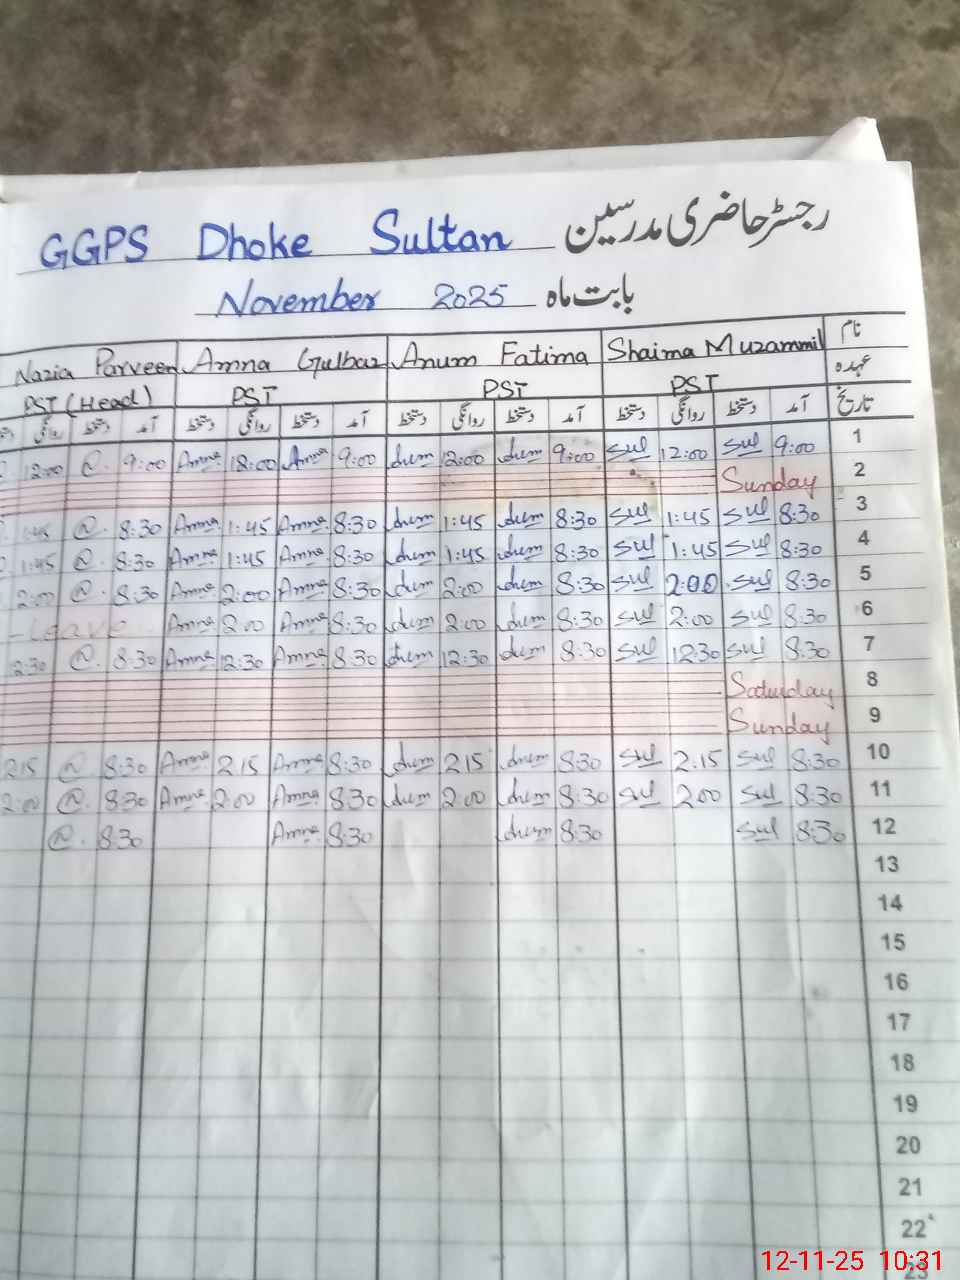 GGPS Dhoke Sultan رجسٹر حاضری مدرسین
November 2025 بابت ماہ
Nazia Parveen Amna Gulbaz Anum Fatima Shaima Muzammil نام
PST (Head) PST PST PST عہدہ
روانگی دستخط آمد دستخط روانگی دستخط آمد دستخط روانگی دستخط آمد دستخط روانگی دستخط آمد تاریخ
12:00 @. 9:00 Amna 12:00 Amna 9:00 Anum 12:00 Anum 9:00 Sul 12:00 Sul 9:00 1
Sunday 2
1:45 @ 8:30 Amna 1:45 Amna 8:30 Anum 1:45 Anum 8:30 Sul 1:45 Sul 8:30 3
1:45 @. 8:30 Amna 1:45 Amna 8:30 Anum 1:45 Anum 8:30 Sul 1:45 Sul 8:30 4
2:00 @. 8:30 Amna 2:00 Amna 8:30 Anum 2:00 Anum 8:30 Sul 2:00 Sul 8:30 5
-Leave Amna 2:00 Amna 8:30 Anum 2:00 Anum 8:30 Sul 2:00 Sul 8:30 6
12:30 @. 8:30 Amna 12:30 Amna 8:30 Anum 12:30 Anum 8:30 Sul 12:30 Sul 8:30 7
Saturday 8
Sunday 9
215 @ 8:30 Amna 215 Amna 8:30 Anum 215 Anum 8:30 Sul 2:15 Sul 8:30 10
2:00 @. 8:30 Amna 2:00 Amna 8:30 Anum 2:00 Anum 8:30 Sul 200 Sul 8:30 11
@. 8:30 Amna 8:30 Anum 8:30 Sul 8:30 12
13
14
15
16
17
18
19
20
21
22
23
12-11-25 10:31